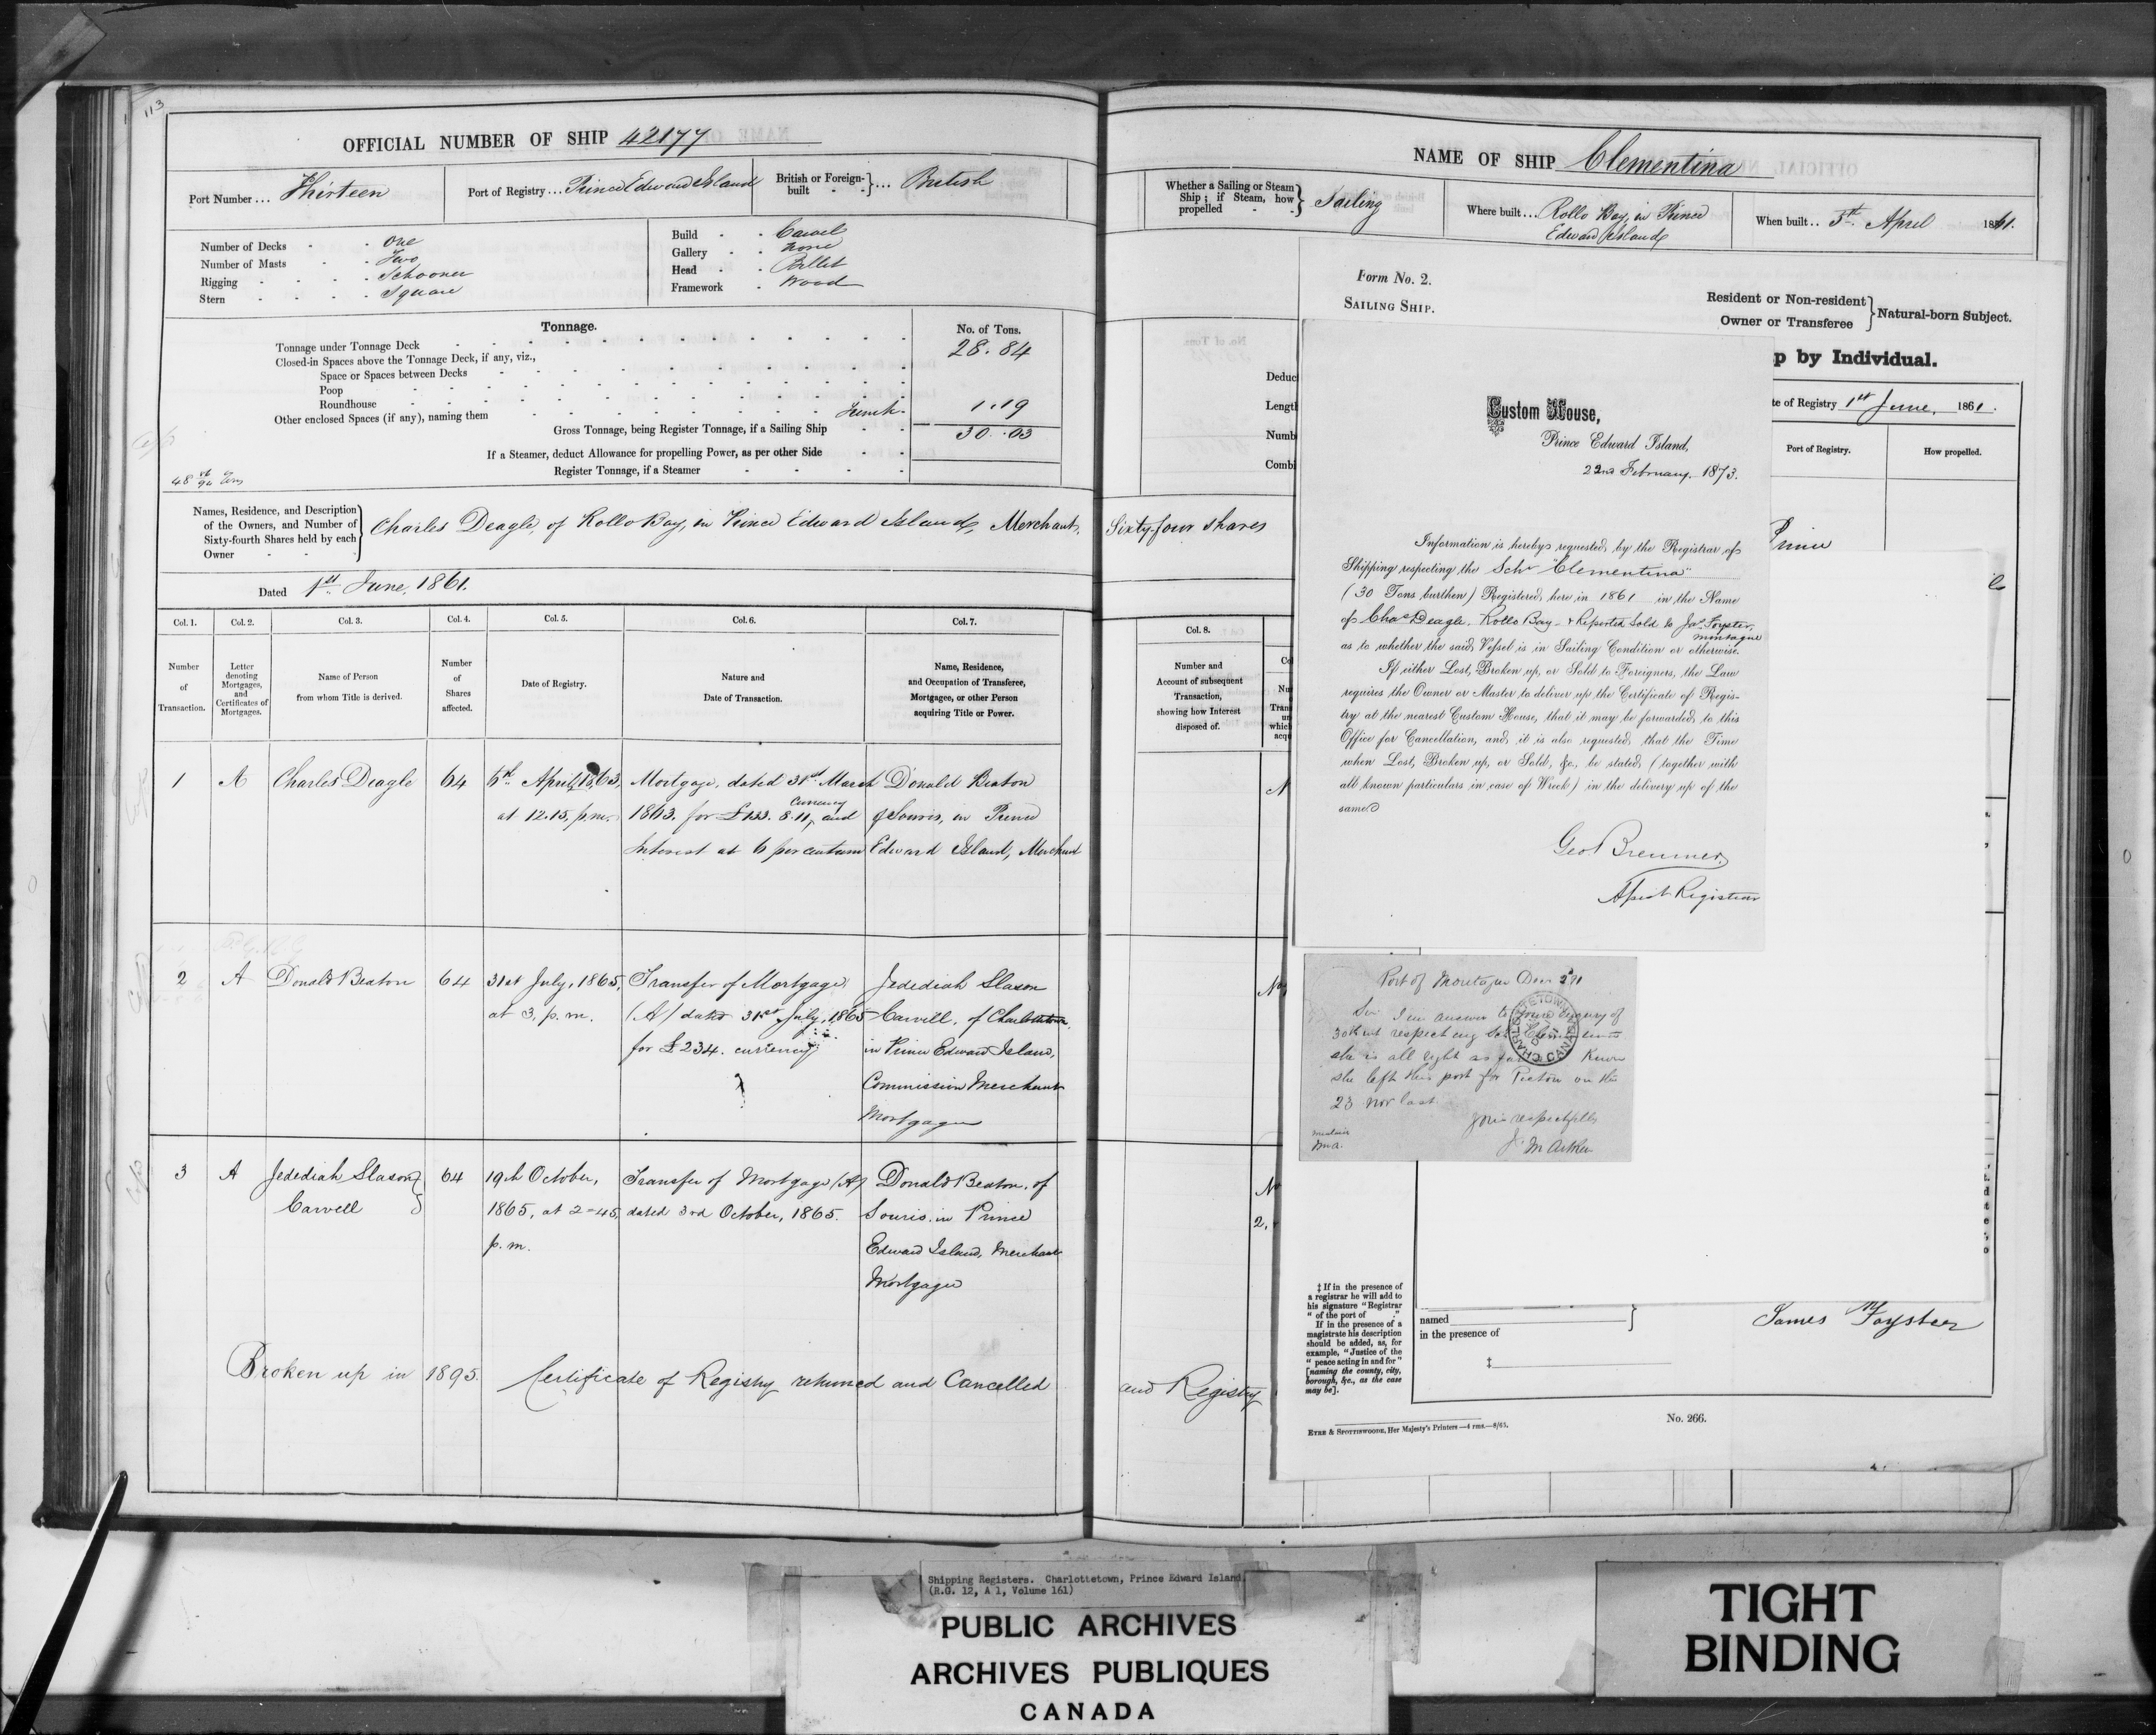 113
OFFICIAL NUMBER OF SHIP 42177
Port Number... Thirteen
Port of Registry... Prince Edward Island
British or Foreign-built - -}... British
Number of Decks - - One
Number of Masts - - Two
Rigging - - - - Schooner
Stern - - - - Square
Build - - Carvel
Gallery - - None
Head - - Billet
Framework - Wood
Tonnage.
No. of Tons.
Tonnage under Tonnage Deck 28.84
Closed-in Spaces above the Tonnage Deck, if any, viz.,
Space or Spaces between Decks
Poop
Roundhouse
Other enclosed Spaces (if any), naming them 1.19
Gross Tonnage, being Register Tonnage, if a Sailing Ship 30.03
If a Steamer, deduct Allowance for propelling Power, as per other Side
Register Tonnage, if a Steamer
Names, Residence, and Description of the Owners, and Number of Sixty-fourth Shares held by each Owner
Charles Deagle, of Rollo Bay, in Prince Edward Island, Merchant, Sixty-four shares
Dated 1st June, 1861.
Col. 1. Col. 2. Col. 3. Col. 4. Col. 5. Col. 6. Col. 7.
Number of Transaction.
Letter denoting Mortgages, and Certificates of Mortgages.
Name of Person from whom Title is derived.
Number of Shares affected.
Date of Registry.
Nature and Date of Transaction.
Name, Residence, and Occupation of Transferee, Mortgagee, or other Person acquiring Title or Power.
1 A Charles Deagle 64 6th April, 1863, Mortgage, dated 31st March Donald Beaton
at 12.15, p.m. 1863. for £133. 8. 11, currency and of Souris, in Prince
Interest at 6 per centum Edward Island, Merchant
2 A Donald Beaton 64 31st July, 1865, Transfer of Mortgage Jedediah Slason
at 3, p.m. (A) dated 31st July, 1865 Carvell, of Charlottetown
for £234. currency in Prince Edward Island,
Commission Merchant
Mortgagee
3 A Jedediah Slason 64 19th October, Transfer of Mortgage (A) Donald Beaton, of
Carvell 1865, at 2-45, dated 3rd October, 1865. Souris, in Prince
p.m. Edward Island, Merchant
Mortgagee
Broken up in 1895. Certificate of Registry returned and Cancelled
and Registry
NAME OF SHIP Clementina
Whether a Sailing or Steam Ship; if Steam, how propelled - -} Sailing
Where built... Rollo Bay, in Prince
Edward Island
When built.. 5th April 1861.
Deduc
Lengt
Numb
Combi
Col. 8.
Number and Account of subsequent Transaction, showing how Interest disposed of.
Form No. 2.
SAILING SHIP.
Resident or Non-resident
Owner or Transferee } Natural-born Subject.
p by Individual.
te of Registry 1st June, 1861.
Port of Registry.
How propelled.
Prince
Custom House,
Prince Edward Island,
22nd February 1873.
Information is hereby requested, by the Registrar of
Shipping respecting the Schr "Clementina"
(30 Tons burthen) Registered here in 1861 in the Name
of Chas Deagle. Rollo Bay - & Reported Sold to Jas Foyster,
Montague
as to whether the said Vessel is in Sailing Condition or otherwise.
If either Lost, Broken up, or Sold to Foreigners, the Law
requires the Owner or Master to deliver up the Certificate of Regis-
try at the nearest Custom House, that it may be forwarded to this
Office for Cancellation, and it is also requested, that the Time
when Lost, Broken up, or Sold, &c., be stated, (together with
all known particulars in case of Wreck) in the delivery up of the
same
Geo Bremner
Assist Registrar
Port of Montague Decr 2nd 91
Sir I in answer to your enquiry of
30th ult respecting Sch Clementina
she is all right as far Known
she left this port for Pictou on the
23 Nov last.
yours respectfully
CHARLOTTETOWN
CANADA
‡ If in the presence of
a registrar he will add to
his signature "Registrar
" of the port of ."
If in the presence of a
magistrate his description
should be added, as, for
example, "Justice of the
" peace acting in and for"
[naming the county, city,
borough, &c., as the case
may be].
named
in the presence of
‡
James Foyster
EYRE & SPOTTISWOODE, Her Majesty's Printers.—4 rms.—8/65.
No. 266.
Shipping Registers. Charlottetown, Prince Edward Island
(R.G. 12, A 1, Volume 161)
PUBLIC ARCHIVES
ARCHIVES PUBLIQUES
CANADA
TIGHT
BINDING